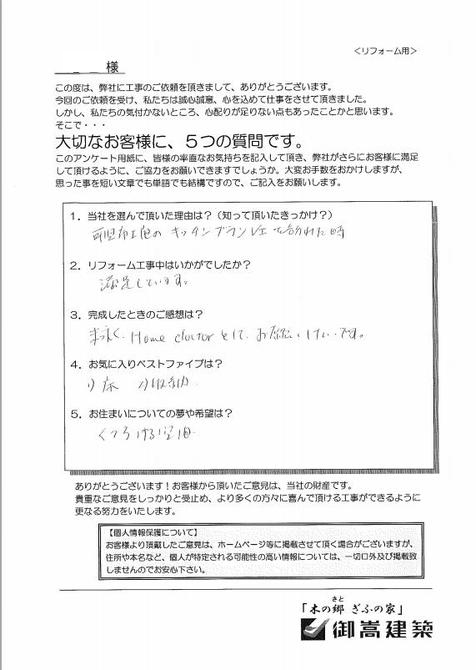 ＜リフォーム用＞
様
この度は、弊社に工事のご依頼を頂きまして、ありがとうございます。
今回のご依頼を受け、私たちは誠心誠意、心を込めて仕事をさせて頂きました。
しかし、私たちの気付かないところ、心配りが足りない点もあったことかと思います。
そこで・・・
大切なお客様に、５つの質問です。
このアンケート用紙に、皆様の率直なお気持ちを記入して頂き、弊社がさらにお客様に満足
して頂けるように、ご協力をお願いできますでしょうか。大変お手数をおかけしますが、
思った事を短い文章でも単語でも結構ですので、ご記入をお願いします。
1．当社を選んで頂いた理由は？（知って頂いたきっかけ？）
キッチン
2．リフォーム工事中はいかがでしたか？
満足しています。
3．完成したときのご感想は？
末永く、Home doctorとして、お願いしたいです。
4．お気に入りベストファイブは？
1) 床 2) 収納
5．お住まいについての夢や希望は？
くつろげる空間
ありがとうございます！お客様から頂いたご意見は、当社の財産です。
貴重なご意見をしっかりと受止め、より多くの方々に喜んで頂ける工事ができるように
更なる努力をいたします。
【個人情報保護について】
お客様より頂戴したご意見は、ホームページ等に掲載させて頂く場合がございますが、
住所や本名など、個人が特定される可能性の高い情報については、一切口外及び掲載致
しませんのでお安心下さい。
さと
「木の郷 ぎふの家」
御嵩建築